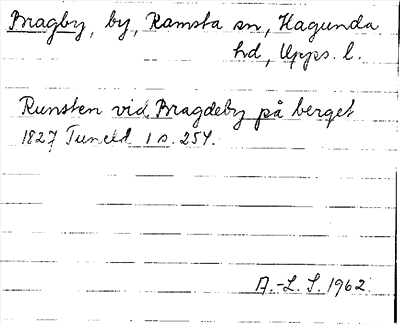 Bragby, by, Ramsta sn, Hagunda
hd, Upps. l.
Runsten vid Bragdeby på berget
1827 Tuneld 1 s. 254.
A.-L. S. 1962.